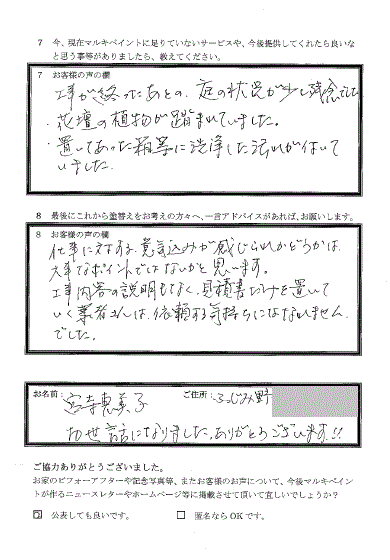 7 今、現在マルキペイントに足りていないサービスや、今後提供してくれたら良いな
と思う事等がありましたら、教えてください。
7 お客様の声の欄
工事が終ったあとの、庭の状況が少し残念でした
・花壇の植物が踏まれていました。
・置いてあった箱等に洗浄した汚れが付いて
いました。
8 最後にこれから塗替えをお考えの方々へ、一言アドバイスがあれば、お願いします。
8 お客様の声の欄
仕事に対する意気込みが感じられるかどうかは、
大事なポイントではないかと思います。
工事内容の説明もなく、見積書だけを置いて
いく業者さんは、依頼する気持ちにはなれません
でした。
お名前: 宮寺恵美子 ご住所: ふじみ野
お世話になりました。ありがとうございます!!
ご協力ありがとうございました。
お家のビフォーアフターや記念写真等、またお客様のお声について、今後マルキペイント
が作るニュースレターやホームページ等に掲載させて頂いて宜しいでしょうか?
公表しても良いです。 □ 匿名ならOKです。